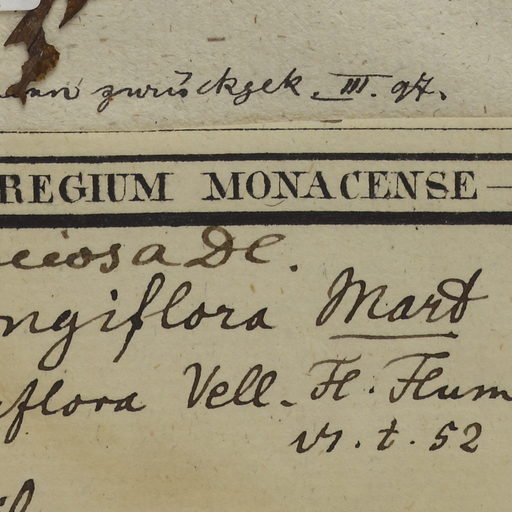 zurückgek. III. 97.
REGIUM MONACENSE
ciosa DC.
ngiflora Mart
flora Vell. Fl. Flum
VI. t. 52